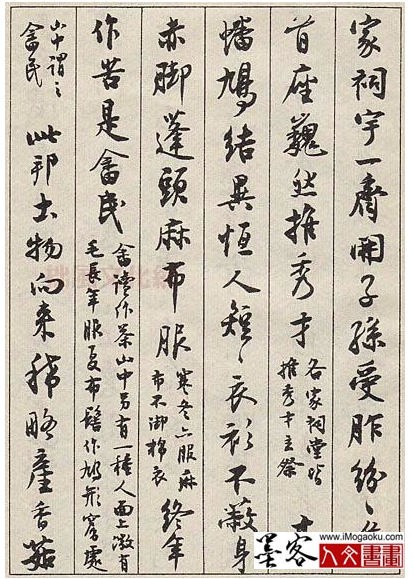 家祠宇一齊開子孫受胙紛〻
首座巍然推秀才
各家祠堂皆
推秀才主祭
蟠鳩結異恒人短〻衣衫不蔽身
赤脚蓬頭麻布服
寒冬亦服麻
布不御棉衣
終年
作苦是畬民
畬讀作茶山中另有一種人面上微有
毛長年服夏布髻作鳩形窩處
山中謂之
畬民
此邦土物向來稀略產香菇
www.iMogaoku.com
墨客 人文書畫